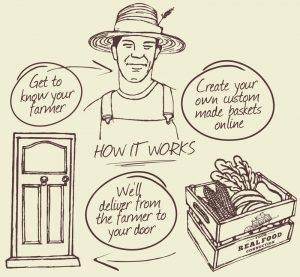 Get to
know your
farmer
Create your
own custom
made baskets
online
HOW IT WORKS
We'll
deliver from
the farmer to
your door
REALFOOD
CONNECTION